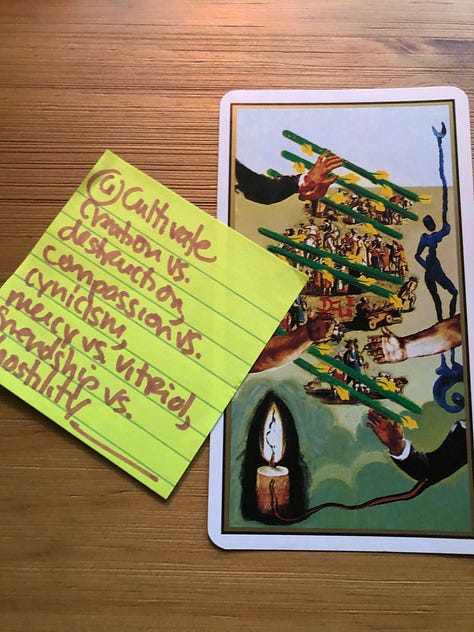 ④ Cultivate
creation vs.
destruction,
compassion vs.
cynicism,
mercy vs. vitriol,
friendship vs.
hostility